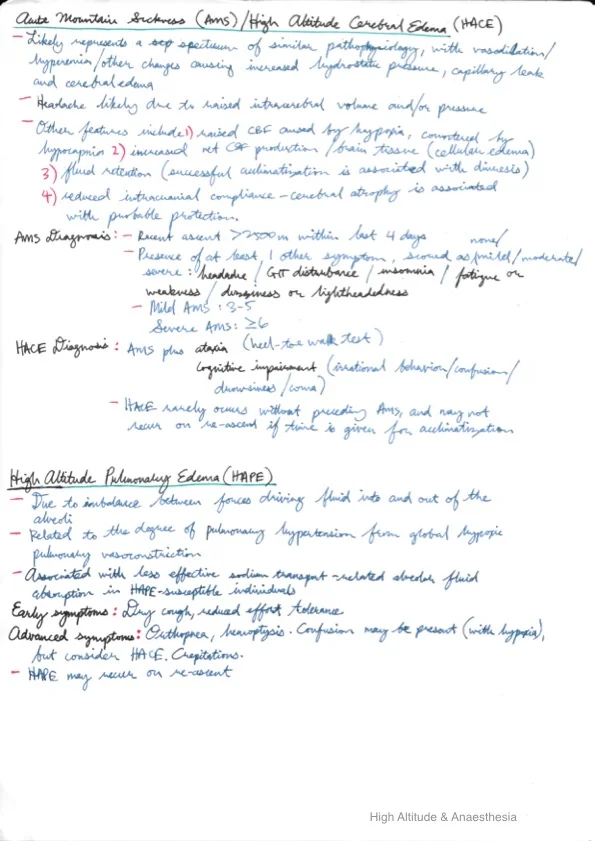 Acute Mountain Sickness (AMS)/High Altitude Cerebral Edema (HACE)
- Likely represents a spectrum of similar pathophysiology, with vasodilation/
hyperemia/other changes causing increased hydrostatic pressure, capillary leak
and cerebral edema
- Headache likely due to raised intracerebral volume and/or pressure
- Other features include 1) raised CBF caused by hypoxia, countered by
hypocapnia 2) increased net CSF production/brain tissue (cellular edema)
3) fluid retention (successful acclimatization is associated with diuresis)
4) reduced intracranial compliance - cerebral atrophy is associated
with probable protection.
AMS Diagnosis: - Recent ascent >2500m within last 4 days
none/
- Presence of at least, 1 other symptom, scored as mild/moderate/
severe: headache / GIT disturbance / insomnia / fatigue or
weakness / dizziness or lightheadedness
- Mild AMS: 3-5
Severe AMS: ≥6
HACE Diagnosis: AMS plus ataxia (heel-toe walk test)
Cognitive impairment (irrational behavior/confusion/
drowsiness/coma)
- HACE rarely occurs without preceding AMS, and may not
recur on re-ascend if time is given for acclimatization
High Altitude Pulmonary Edema (HAPE)
- Due to imbalance between forces driving fluid into and out of the
alveoli
- Related to the degree of pulmonary hypertension from global hypoxic
pulmonary vasoconstriction
- Associated with less effective sodium transport-related alveolar fluid
absorption in HAPE-susceptible individuals
Early symptoms: Dry cough, reduced effort tolerance
Advanced symptoms: Orthopnea, hemoptysis. Confusion may be present (with hypoxia),
but consider HACE. Crepitations.
- HAPE may recur on re-ascent
High Altitude & Anaesthesia